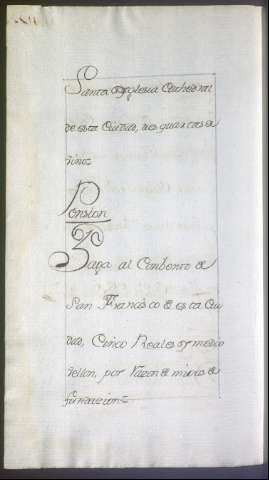 Santa Yglesia Cathedral
de esta Ciudad, tres quartas a
vino=
Pension
Paga al Combento de
San Francisco de esta Ciu
dad, Cinco Reales y medio
vellon, por razon de missas de
fundazion=